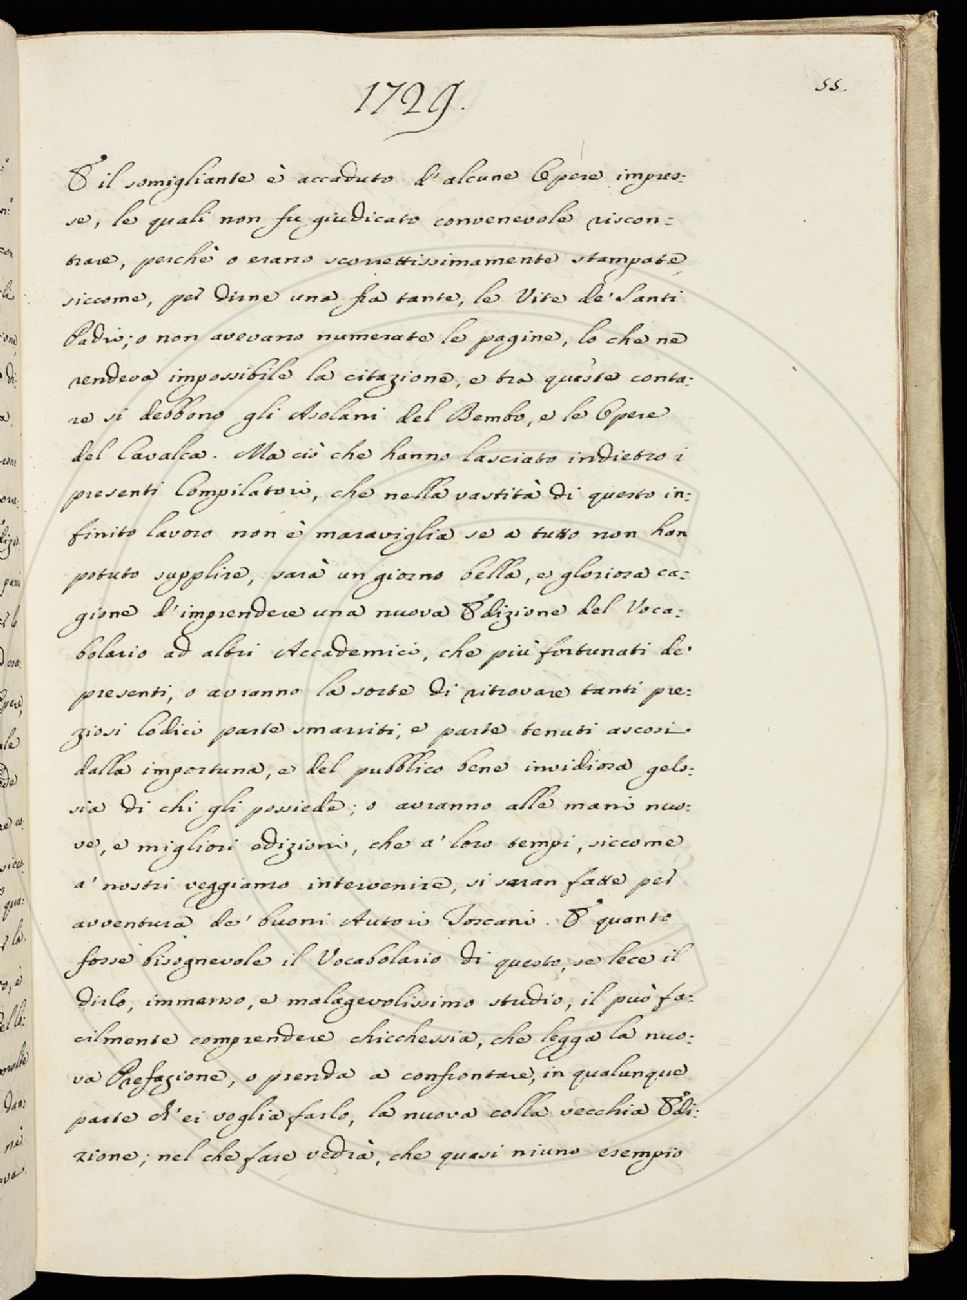 1729.
55.
E il somigliante è accaduto d'alcune Opere impres:
se, le quali non fu giudicato convenevole riscon:
trare, perchè o erano scorrettissimamente stampate,
siccome, per dirne una fra tante, le Vite de' Santi
Padri; o non avevano numerate le pagine, lo che ne
rendeva impossibile la citazione, e tra queste conta:
re si debbono gli Asolani del Bembo, e le Opere
del Cavalca. Ma ciò che hanno lasciato indietro i
presenti Compilatori, che nella vastità di questo in:
finito lavoro non è maraviglia se a tutto non han
potuto supplire, sarà un giorno bella, e gloriosa ca:
gione d'imprendere una nuova Edizione del Voca:
bolario ad altri Accademici, che più fortunati de'
presenti, o avranno la sorte di ritrovare tanti pre:
ziosi Codici parte smarriti, e parte tenuti ascosi
dalla importuna, e del pubblico bene invidiosa gelo:
sia di chi gli possiede; o avranno alle mani nuo:
ve, e migliori edizioni, che a' loro tempi, siccome
a' nostri veggiamo intervenire, si saran fatte per
avventura de' buoni Autori Toscani. E quanto
fosse bisognevole il Vocabolario di questo, se lece il
dirlo, immenso, e malagevolissimo studio, il può fa:
cilmente comprendere chicchessia, che legga la nuo:
va Prefazione, o prenda a confrontare, in qualunque
parte ch' ei voglia farlo, la nuova colla vecchia Edi:
zione; nel che fare vedrà, che quasi niuno esempio